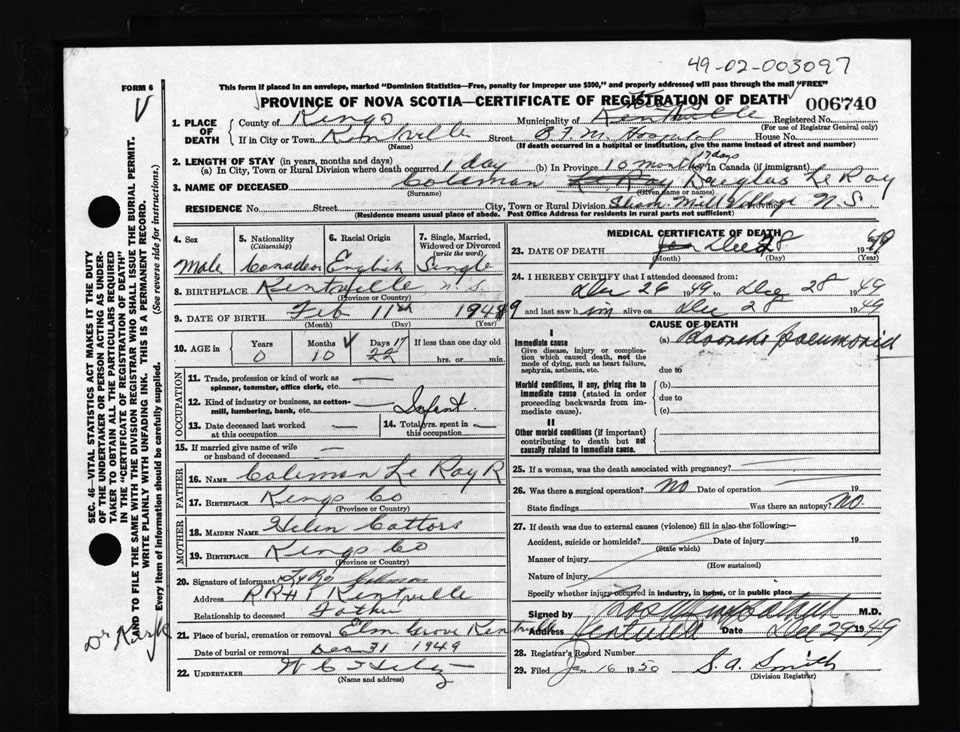 49-02-003097
FORM 6
This form if placed in an envelope, marked "Dominion Statistics—Free, penalty for improper use $300," and properly addressed will pass through the mail "FREE"
PROVINCE OF NOVA SCOTIA—CERTIFICATE OF REGISTRATION OF DEATH 006740
1. PLACE OF DEATH
County of Kings Municipality of Kentville Registered No.
(For use of Registrar General only)
If in City or Town Kentville Street B.F.M. Hospital House No.
(Name) (If death occurred in a hospital or institution, give the name instead of street and number)
2. LENGTH OF STAY (in years, months and days)
(a) In City, Town or Rural Division where death occurred 1 day (b) In Province 10 months 17 days (c) In Canada (if immigrant)
3. NAME OF DECEASED Coleman Le Roy Douglas Le Roy
(Surname) (Given name or names)
RESIDENCE No. Street City, Town or Rural Division Mill Village N.S
(Residence means usual place of abode. Post Office Address for residents in rural parts not sufficient)
4. Sex Male
5. Nationality (Citizenship) Canadian
6. Racial Origin English
7. Single, Married, Widowed or Divorced (write the word) Single
8. BIRTHPLACE Kentville N.S.
(Province or Country)
9. DATE OF BIRTH Feb 11th 1949
(Month) (Day) (Year)
10. AGE in Years Months Days If less than one day old
0 10 17 22 hrs. or min.
OCCUPATION
11. Trade, profession or kind of work as spinner, teamster, office clerk, etc. —
12. Kind of industry or business, as cotton-mill, lumbering, bank, etc. — Infant
13. Date deceased last worked at this occupation — 14. Total yrs. spent in this occupation —
15. If married give name of wife or husband of deceased —
FATHER
16. NAME Coleman Le Roy R
17. BIRTHPLACE Kings Co
(Province or Country)
MOTHER
18. MAIDEN NAME Helen
19. BIRTHPLACE Kings Co
(Province or Country)
20. Signature of informant LeRoy Coleman
Address RR#1 Kentville
Relationship to deceased Father
21. Place of burial, cremation or removal Elm Grove Kentville
Date of burial or removal Dec 31 1949
22. UNDERTAKER W C
(Name and address)
MEDICAL CERTIFICATE OF DEATH
23. DATE OF DEATH Jan Dec 28 1949
(Month) (Day) (Year)
24. I HEREBY CERTIFY that I attended deceased from:
Dec 26 1949 to Dec 28 1949
and last saw him alive on Dec 28 1949
CAUSE OF DEATH
I
Immediate cause (a) Broncho pneumonia
Give disease, injury or complication which caused death, not the mode of dying, such as heart failure, asphyxia, asthenia, etc.
due to
Morbid conditions, if any, giving rise to immediate cause (stated in order proceeding backwards from immediate cause).
(b)
due to
(c)
II
Other morbid conditions (if important) contributing to death but not causally related to immediate cause.
25. If a woman, was the death associated with pregnancy? —
26. Was there a surgical operation? No Date of operation — 19
State findings Was there an autopsy? No
27. If death was due to external causes (violence) fill in also the following:—
Accident, suicide or homicide? Date of injury 19
(State which)
Manner of injury
(How sustained)
Nature of injury
Specify whether injury occurred in industry, in home, or in public place
Signed by M.D.
Address Kentville Date Dec 29 1949
28. Registrar's Record Number
29. Filed Jan 16 1950 S. A. Smith
(Division Registrar)
SEC. 46—VITAL STATISTICS ACT MAKES IT THE DUTY
OF THE UNDERTAKER OR PERSON ACTING AS UNDER-
TAKER TO OBTAIN ALL THE PARTICULARS REQUIRED
IN THE "CERTIFICATE OF REGISTRATION OF DEATH"
AND TO FILE THE SAME WITH THE DIVISION REGISTRAR WHO SHALL ISSUE THE BURIAL PERMIT.
WRITE PLAINLY WITH UNFADING INK. THIS IS A PERMANENT RECORD.
Every item of information should be carefully supplied. (See reverse side for instructions.)
Dr Kirk